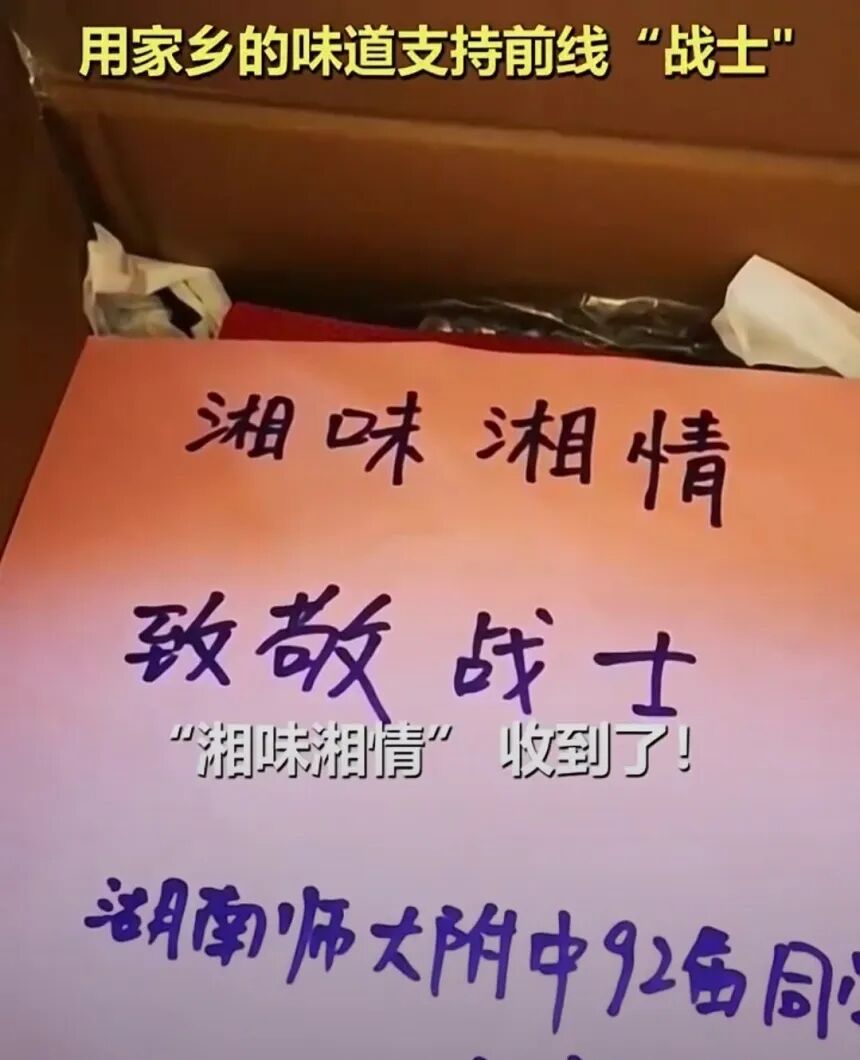 用家乡的味道支持前线“战士"
湘味湘情
致敬战士
“湘味湘情” 收到了!
湖南师大附中92届同